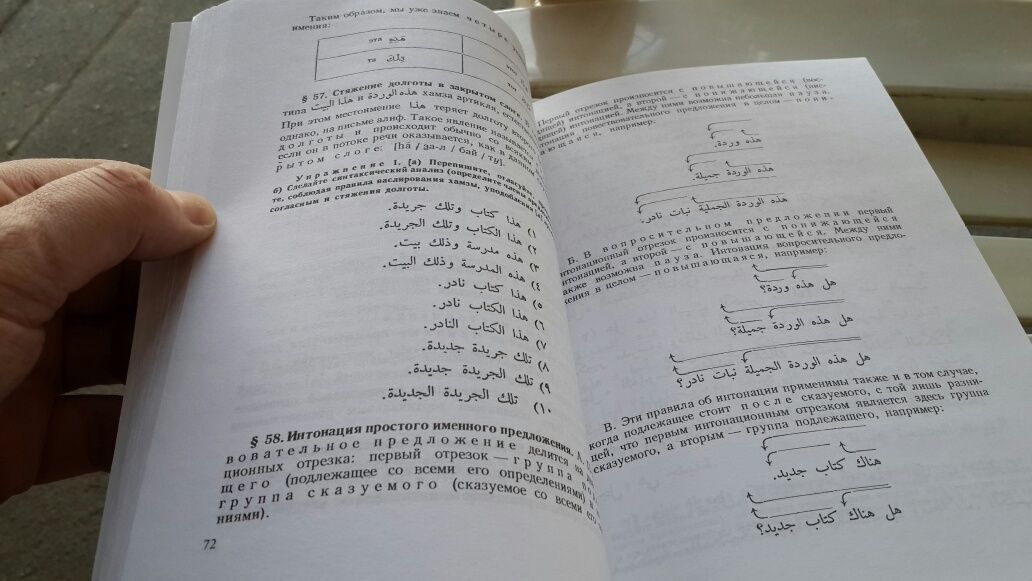 Таким образом, мы уже знаем четыре
имения:
эта هَذِهِ
та تِلْكَ
§ 57. Стяжение долготы в закрытом
типа هذا البيت и هذه الوردة хамза артикля,
При этом местоимение هذا теряет долготу
однако, на письме алиф. Такое явление
долготы и происходит обычно во
если он в потоке речи оказывается, как в данном
рытом слоге: [hā / за-л / бай / ту].
Упражнение 1. [а) Перепишите,
б) Сделайте синтаксический анализ (определите члены
те, соблюдая правила васлирования хамзы, уподобления [л]
согласным и стяжения долготы.
١) هذا كتاب وتلك جريدة.
٢) هذا الكتاب وتلك الجريدة.
٣) هذه مدرسة وذلك بيت.
٤) هذه المدرسة وذلك البيت.
٥) هذا كتاب نادر.
٦) هذا الكتاب نادر.
٧) هذا الكتاب النادر.
٨) تلك جريدة جديدة.
٩) تلك الجريدة جديدة.
١٠) تلك الجريدة الجديدة.
§ 58. Интонация простого именного предложения. А.
вовательное предложение делится на
ционных отрезка: первый отрезок — группа
щего (подлежащее со всеми его определениями) и
группа сказуемого (сказуемое со всеми его
ниями).
72
Первый отрезок произносится с повышающейся (вос-
интонацией, а второй — с понижающейся (нис-
интонацией. Между ними возможна небольшая пауза.
повествовательного предложения в целом — пони-
ющаяся, например:
هذه وردة.
هذه الوردة جميلة.
هذه الوردة الجميلة نبات نادر.
Б. В вопросительном предложении первый
интонационный отрезок произносится с понижающейся
интонацией, а второй — с повышающейся. Между ними
также возможна пауза. Интонация вопросительного предло-
жения в целом — повышающаяся, например:
هل هذه وردة؟
هل هذه الوردة جميلة؟
هل هذه الوردة الجميلة نبات نادر؟
В. Эти правила об интонации применимы также и в том случае,
когда подлежащее стоит после сказуемого, с той лишь разни-
цей, что первым интонационным отрезком является здесь группа
сказуемого, а вторым — группа подлежащего, например:
هناك كتاب جديد.
هل هناك كتاب جديد؟